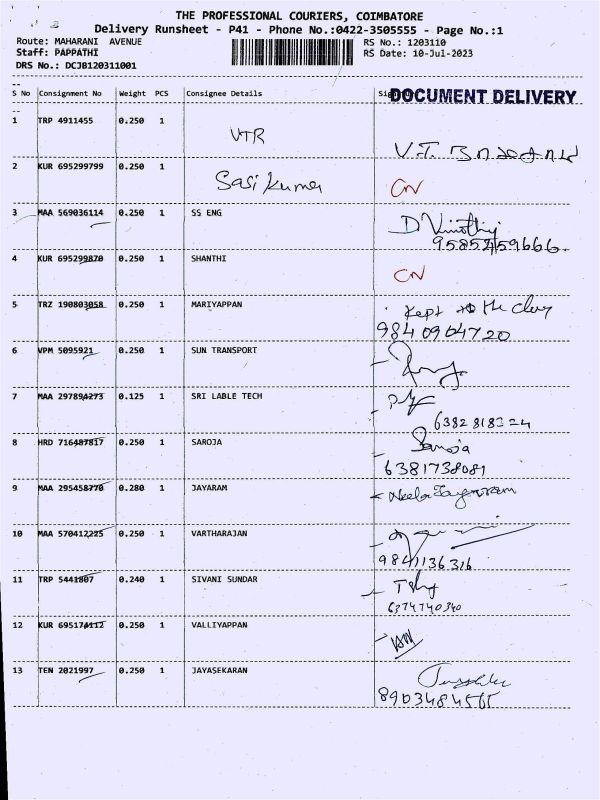 THE PROFESSIONAL COURIERS, COIMBATORE
Delivery Runsheet - P41 - Phone No.:0422-3505555 - Page No.:1
Route: MAHARANI AVENUE RS No.: 1203110
Staff: PAPPATHI RS Date: 10-Jul-2023
DRS No.: DCJB120311001
S No Consignment No Weight PCS Consignee Details DOCUMENT DELIVERY
1 TRP 4911455 0.250 1 VTR
V.T.
2 KUR 695299799 0.250 1 Sasi Kumar CN
3 MAA 569036114 0.250 1 SS ENG D Vinothij
9585459666
4 KUR 695299870 0.250 1 SHANTHI CN
5 TRZ 190803058 0.250 1 MARIYAPPAN Kept the
9840904720
6 VPM 5095921 0.250 1 SUN TRANSPORT
7 MAA 297894273 0.125 1 SRI LABLE TECH
6382818324
8 HRD 716487817 0.250 1 SAROJA Saroja
6381738081
9 MAA 295458770 0.280 1 JAYARAM Neela Jayaram
10 MAA 570412225 0.250 1 VARTHARAJAN
9841136316
11 TRP 5441807 0.240 1 SIVANI SUNDAR
6374740340
12 KUR 695174112 0.250 1 VALLIYAPPAN
13 TEN 2021997 0.250 1 JAYASEKARAN
8903484565